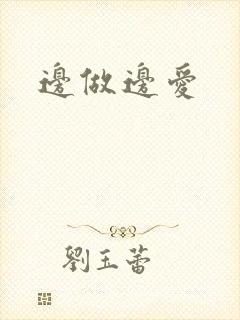 邊做邊愛
劉玉蕾